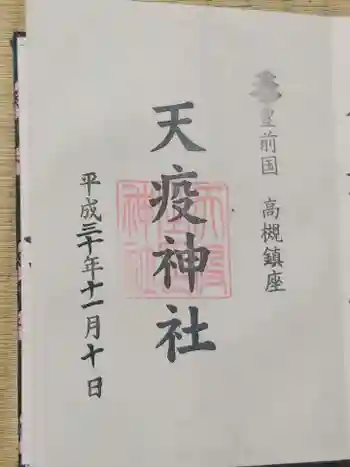 豊前国 高槻鎮座
天疫神社
平成三十年十一月十日
天疫神社